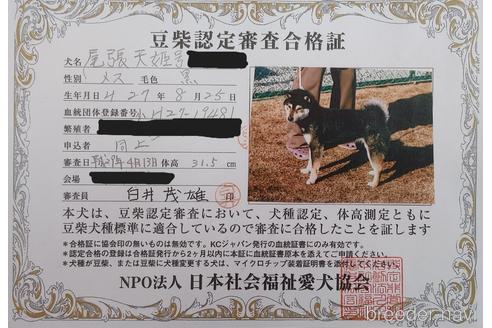 豆柴認定審査合格証
犬名 尾張天姫号
性別 メス 毛色 黒
生年月日 H27年8月25日
血統団体登録番号 H27-19481
繁殖者
申込者 同上
審査日 4月13日 体高 31.5 cm
会場
審査員 臼井茂雄 印
本犬は、豆柴認定審査において、犬種認定、体高測定ともに
豆柴犬種標準に適合しているので審査に合格したことを証します
*合格証に協会印の無いものは無効です。KCジャパン発行の血統証書にのみ有効です。
*認定合格の登録は合格証発行から2ヶ月以内に本証に血統証書原本を添えてご申請ください。
*犬種が豆柴、または豆柴に犬種変更する犬は、マイクロチップ装着証明書を添付してください。
NPO法人 日本社会福祉愛犬協会
breeder-navi